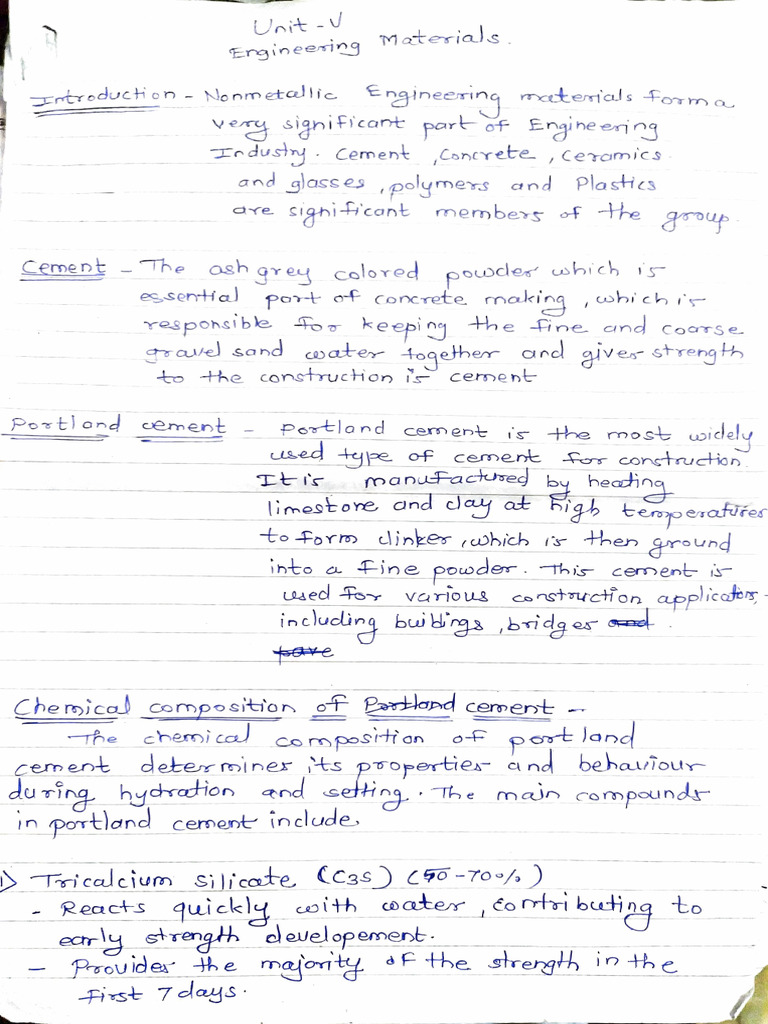 Unit - V
Engineering Materials.
Introduction - Nonmetallic Engineering materials form a
very significant part of Engineering
Industry. Cement, concrete, ceramics
and glasses, polymers and Plastics
are significant members of the group.
Cement - The ash grey colored powder which is
essential part of concrete making, which is
responsible for keeping the fine and coarse
gravel sand water together and gives strength
to the construction is cement
Portland cement - portland cement is the most widely
used type of cement for construction.
It is manufactured by heating
limestone and clay at high temperatures
to form clinker, which is then ground
into a fine powder. This cement is
used for various construction applications,
including buildings, bridges and.
pave
Chemical composition of Portland cement -
The chemical composition of portland
cement determines its properties and behaviour
during hydration and setting. The main compounds
in portland cement include.
1) Tricalcium silicate (C3S) (50-70%)
- Reacts quickly with water, contributing to
early strength developement.
- Provides the majority of the strength in the
first 7 days.